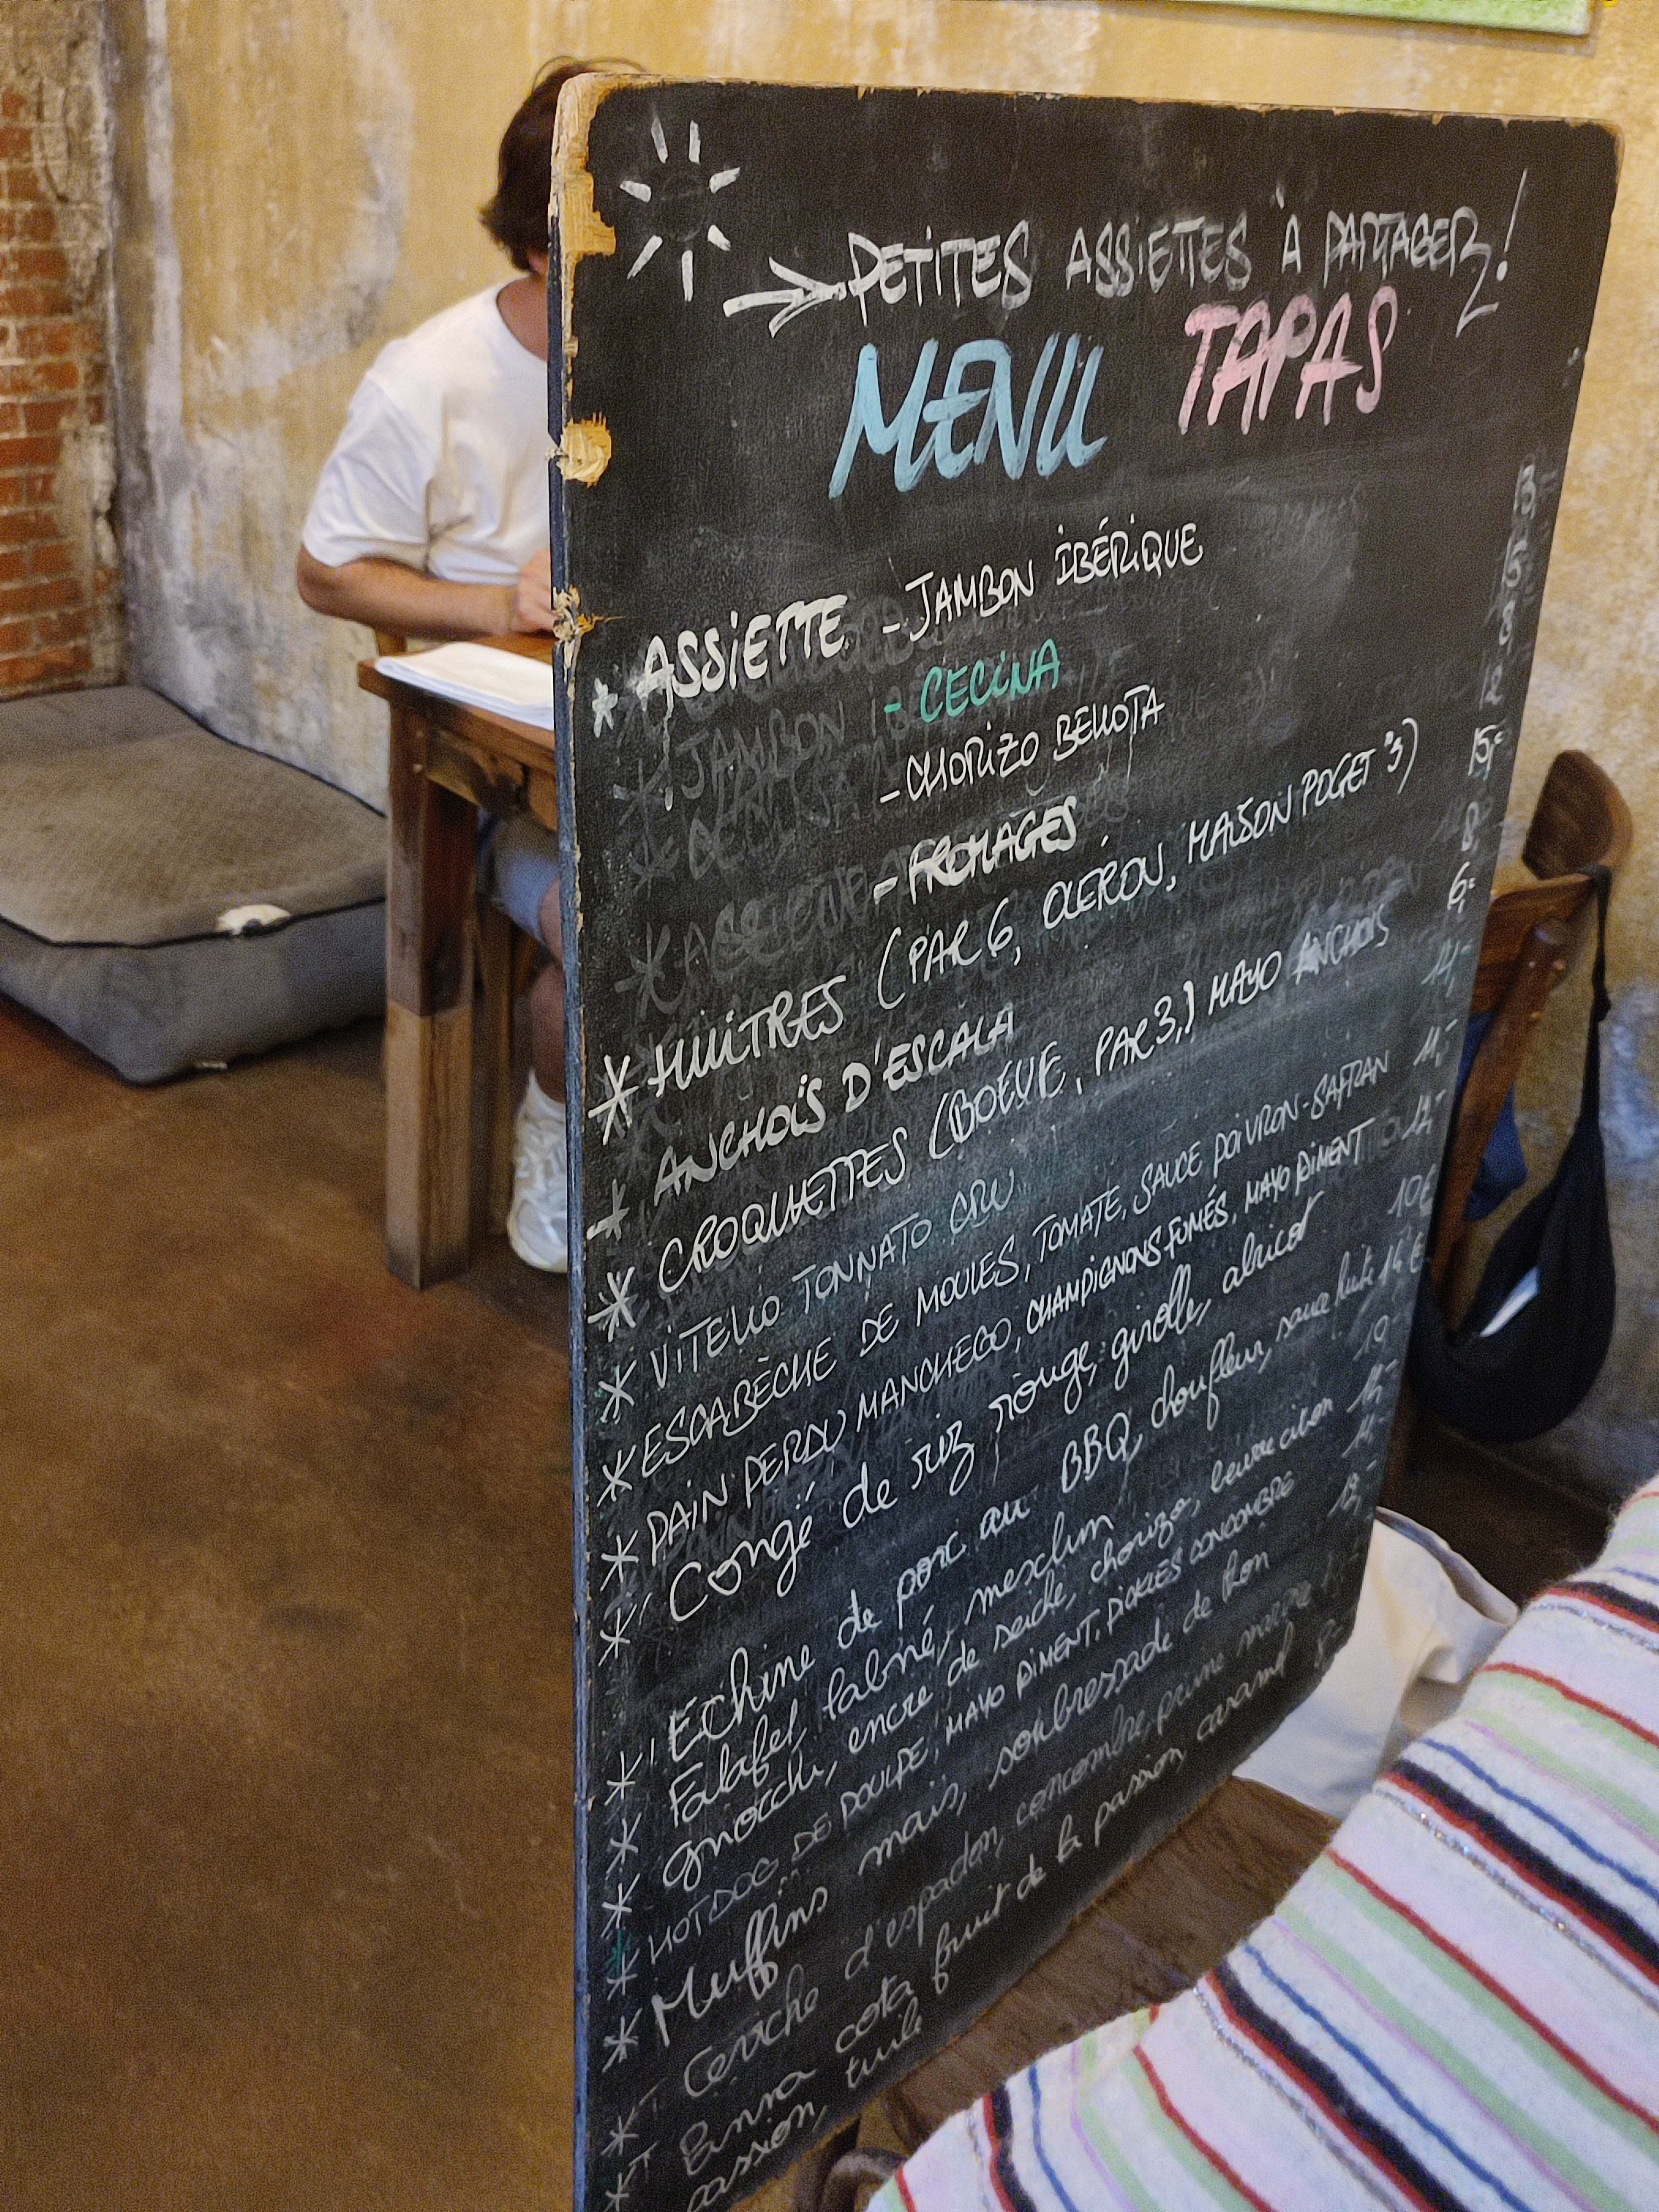 → PETITES ASSIETTES À PARTAGER!
MENU TAPAS
* ASSIETTE - JAMBON IBÉRIQUE
- CECINA
- CHORIZO BELLOTA
- FROMAGES
* HUITRES (PAR 6, OLERON, MAISON POGET °3) 15,-
* ANCHOIS D'ESCALA 8
* CROQUETTES (BOEUF, PAR 3,) MAYO ANCHOIS 6,-
* VITELLO TONNATO CRU 14,-
* ESCABÈCHE DE MOULES, TOMATE, SAUCE POIVRON-SAFRAN 11,-
* PAIN PERDU MANCHEGO, CHAMPIGNONS FUMÉS, MAYO PIMENT 12,-
* Congë de riz rouge, girolle, abricot 10€
* Echine de porc au BBQ, choufleur, sauce 14€
* Falafel, labné, mesclun 10-
* gnocchi, encre de seiche, chorizo, beurre citron 14-
* HOTDOG DE POULPE, MAYO PIMENT, PICKLES CONCOMBRE 14,-
* Muffins maïs, sombressade de thon 12,-
* Ceviche d'espadon, concombre, prune
* Panna cota fruit de la passion, caramel 8-
passion, tuile